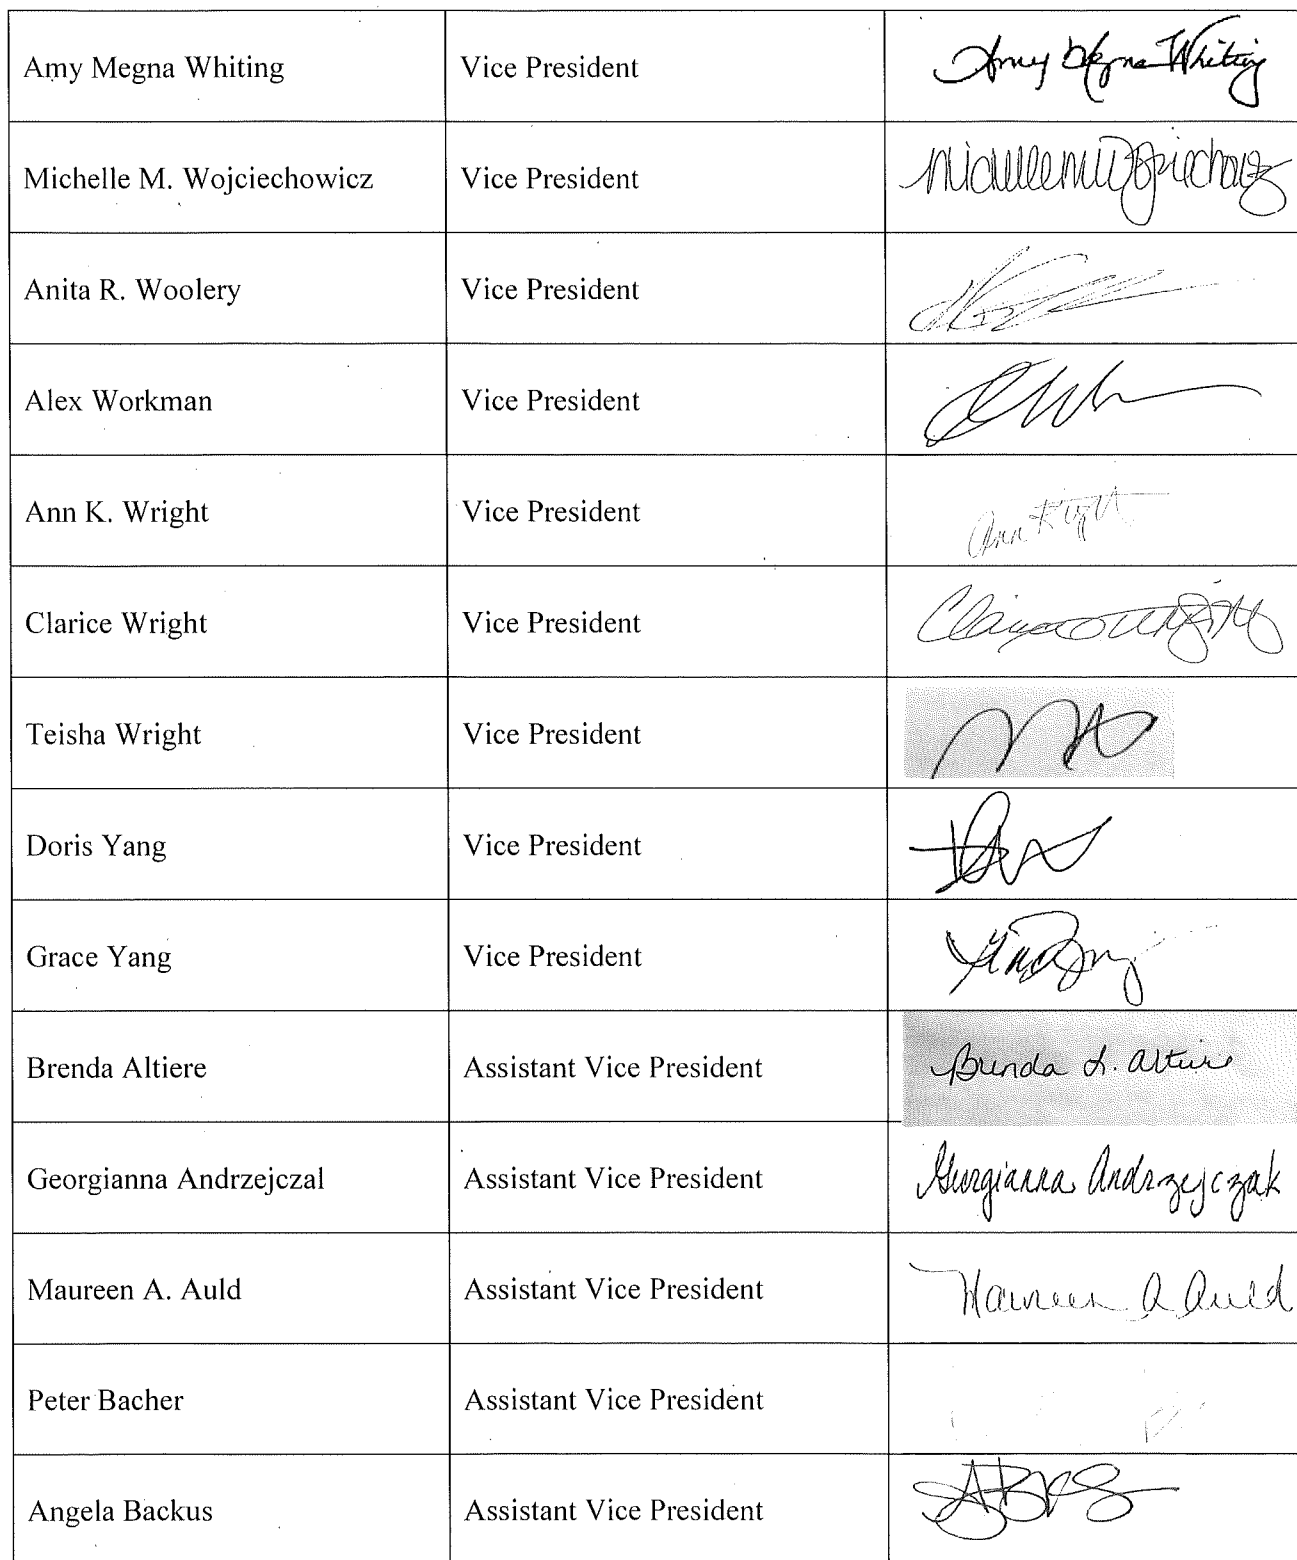 Amy Megna Whiting Vice President Amy Megna Whiting
Michelle M. Wojciechowicz Vice President
Anita R. Woolery Vice President
Alex Workman Vice President
Ann K. Wright Vice President Ann
Clarice Wright Vice President
Teisha Wright Vice President
Doris Yang Vice President
Grace Yang Vice President
Brenda Altiere Assistant Vice President Brenda L. Altiere
Georgianna Andrzejczal Assistant Vice President Georgianna Andrzejczak
Maureen A. Auld Assistant Vice President Maureen A Auld
Peter Bacher Assistant Vice President
Angela Backus Assistant Vice President